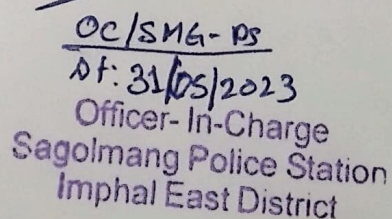 OC/SMG-PS
Dt: 31/05/2023
Officer-In-Charge
Sagolmang Police Station
Imphal East District